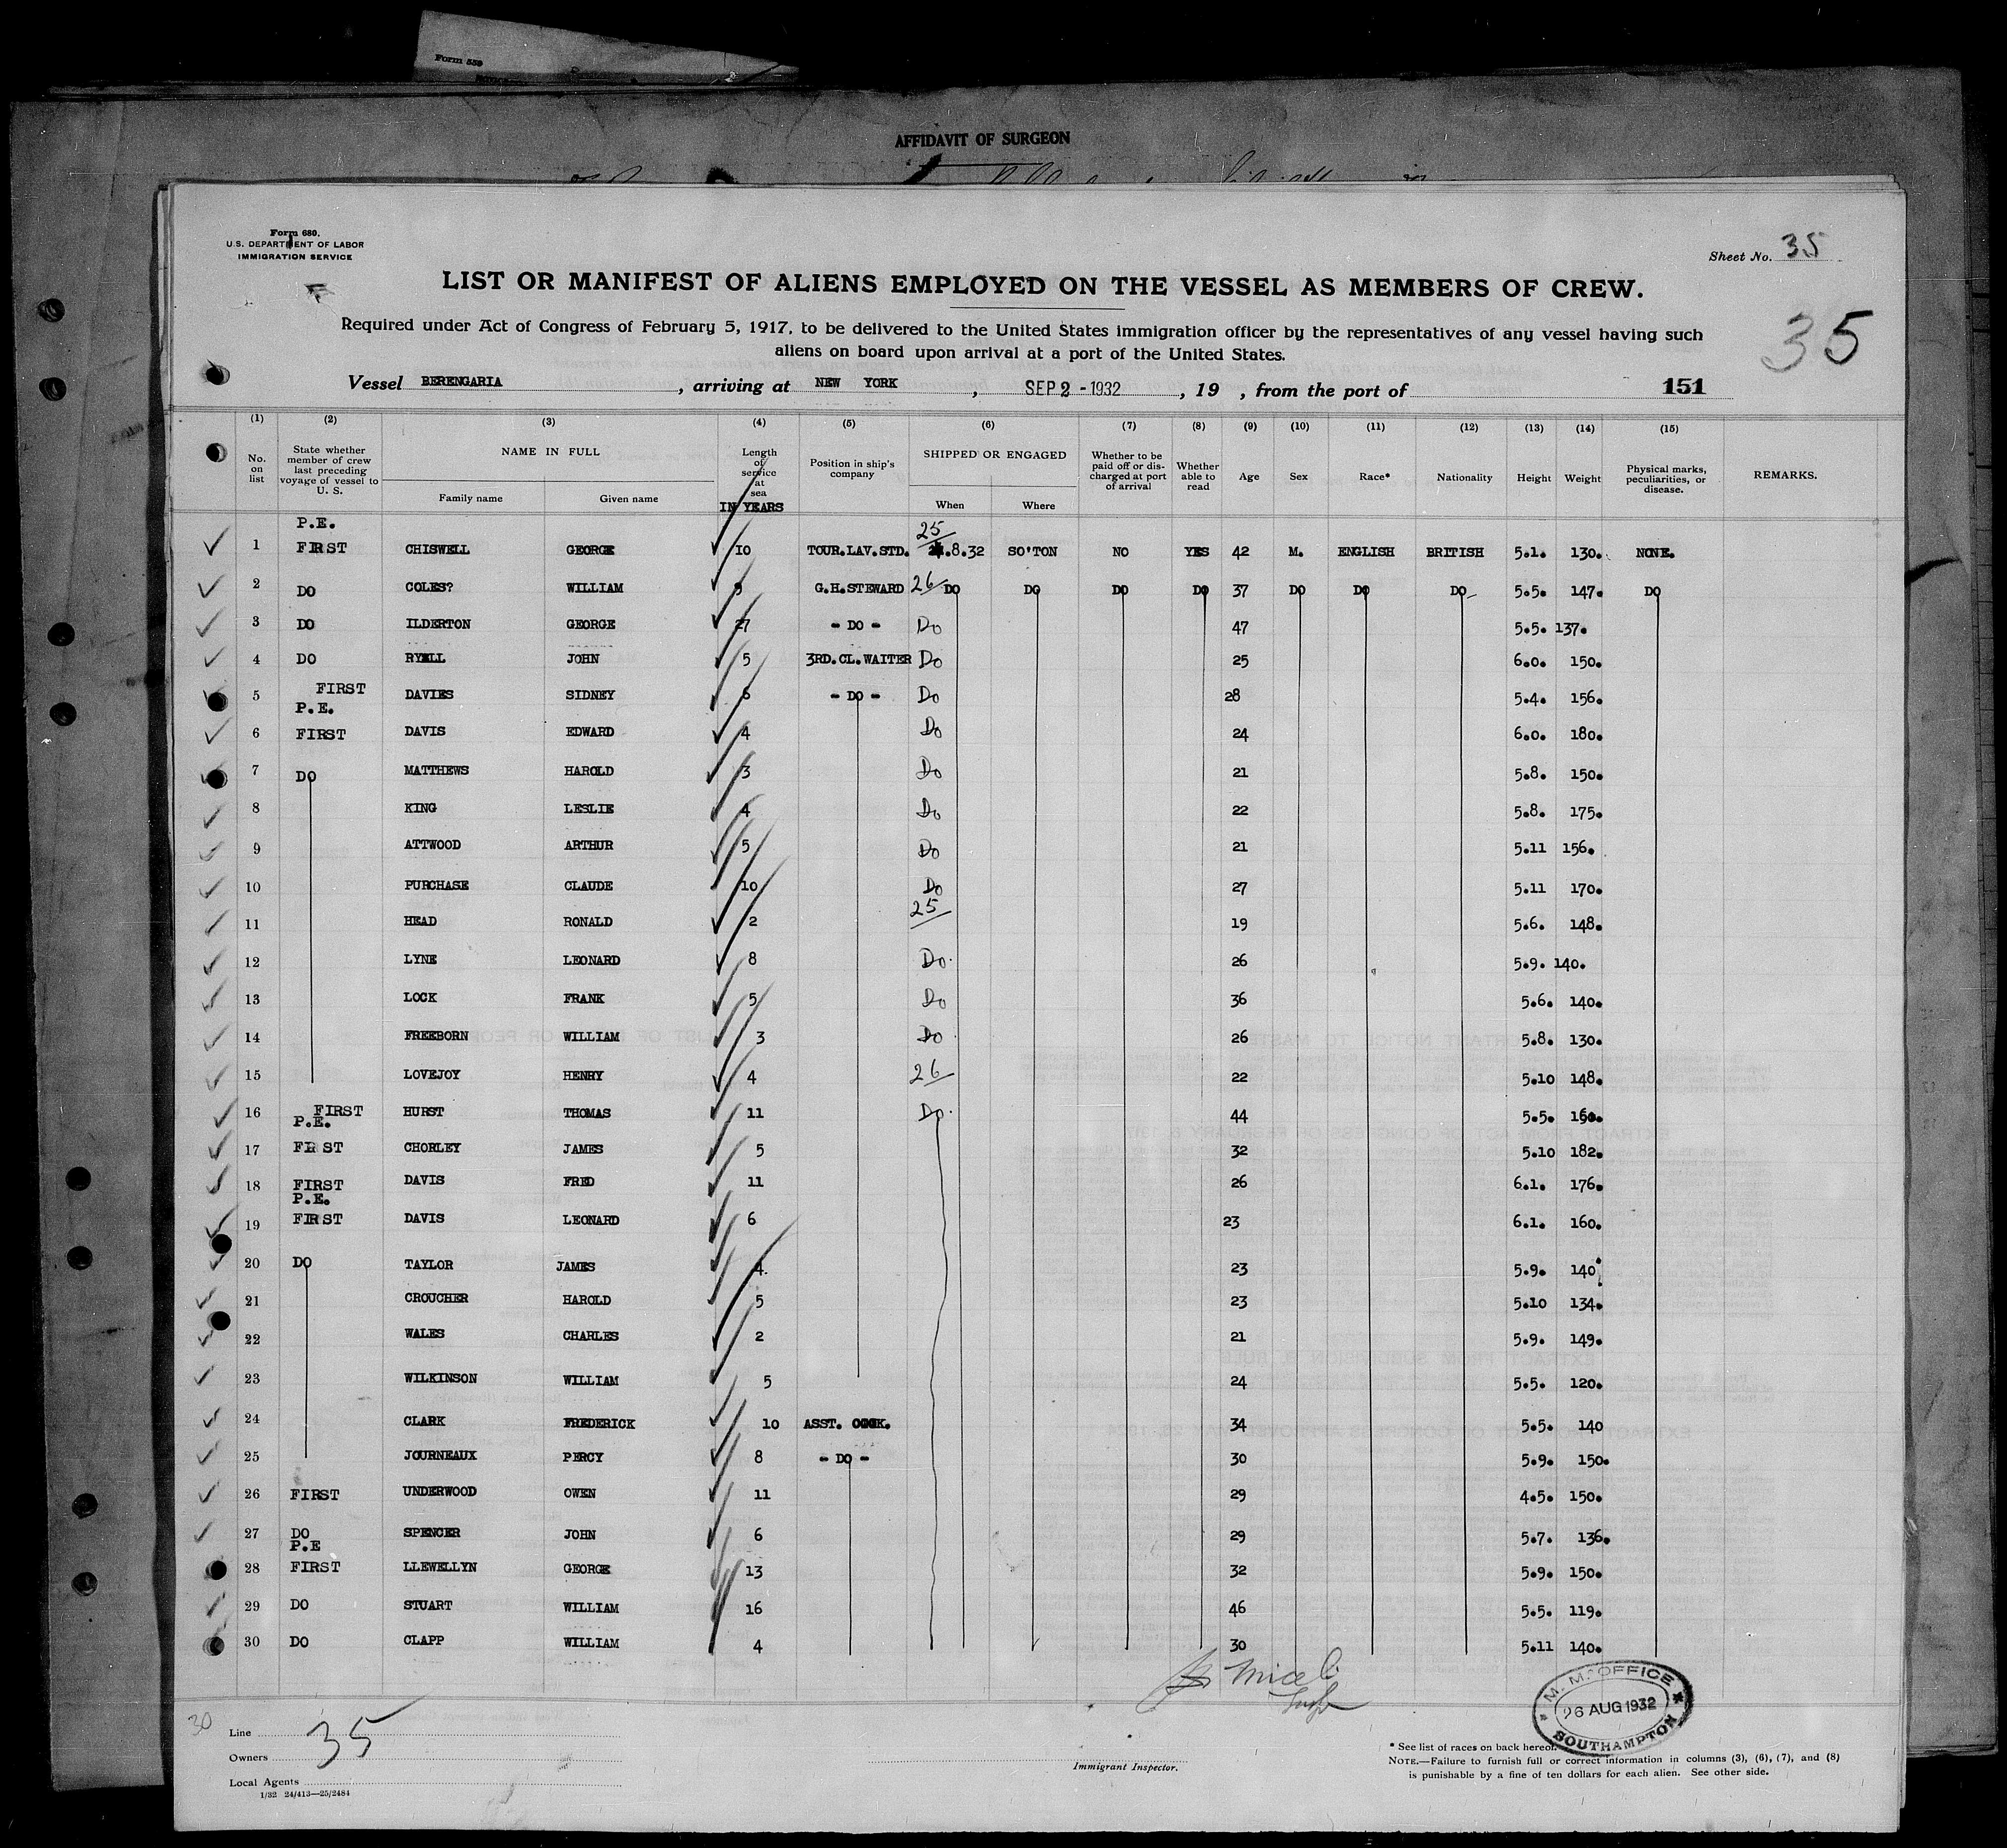 Form 559
AFFIDAVIT OF SURGEON
Form 680.
U.S. DEPARTMENT OF LABOR
IMMIGRATION SERVICE
Sheet No. 35
LIST OR MANIFEST OF ALIENS EMPLOYED ON THE VESSEL AS MEMBERS OF CREW.
35
Required under Act of Congress of February 5, 1917, to be delivered to the United States immigration officer by the representatives of any vessel having such
aliens on board upon arrival at a port of the United States.
Vessel BERENGARIA, arriving at NEW YORK, SEP 2 - 1932, 19 , from the port of 151
(1) (2) (3) (4) (5) (6) (7) (8) (9) (10) (11) (12) (13) (14) (15)
No. on list State whether member of crew last preceding voyage of vessel to U. S. NAME IN FULL Family name Given name Length of service at sea IN YEARS Position in ship's company SHIPPED OR ENGAGED When Where Whether to be paid off or discharged at port of arrival Whether able to read Age Sex Race* Nationality Height Weight Physical marks, peculiarities, or disease. REMARKS.
P.E. 25
1 FIRST CHISWELL GEORGE 10 TOUR.LAV.STD. 24.8.32 SO'TON NO YES 42 M. ENGLISH BRITISH 5.1. 130. NONE.
2 DO COLES? WILLIAM 9 G.H.STEWARD 26 DO DO DO DO 37 DO DO DO 5.5. 147. DO
3 DO ILDERTON GEORGE 27 - DO - Do 47 5.5. 137.
4 DO RYALL JOHN 5 3RD.CL.WAITER Do 25 6.0. 150.
5 FIRST DAVIES SIDNEY 6 - DO - Do 28 5.4. 156.
P.E.
6 FIRST DAVIS EDWARD 4 Do 24 6.0. 180.
7 DO MATTHEWS HAROLD 3 Do 21 5.8. 150.
8 KING LESLIE 4 Do 22 5.8. 175.
9 ATTWOOD ARTHUR 5 Do 21 5.11 156.
10 PURCHASE CLAUDE 10 Do 27 5.11 170.
11 HEAD RONALD 2 25 19 5.6. 148.
12 LYNE LEONARD 8 Do. 26 5.9. 140.
13 LOCK FRANK 5 Do 36 5.6. 140.
14 FREEBORN WILLIAM 3 Do. 26 5.8. 130.
15 LOVEJOY HENRY 4 26 22 5.10 148.
16 FIRST HURST THOMAS 11 Do. 44 5.5. 160.
P.E.
17 FIRST CHORLEY JAMES 5 32 5.10 182.
18 FIRST DAVIS FRED 11 26 6.1. 176.
P.E.
19 FIRST DAVIS LEONARD 6 23 6.1. 160.
20 DO TAYLOR JAMES 4. 23 5.9. 140
21 CROUCHER HAROLD 5 23 5.10 134.
22 WALES CHARLES 2 21 5.9. 149.
23 WILKINSON WILLIAM 5 24 5.5. 120.
24 CLARK FREDERICK 10 ASST. COOK. 34 5.5. 140
25 JOURNEAUX PERCY 8 - DO - 30 5.9. 150.
26 FIRST UNDERWOOD OWEN 11 29 4.5. 150.
27 DO SPENCER JOHN 6 29 5.7. 136.
P.E
28 FIRST LLEWELLYN GEORGE 13 32 5.9. 150.
29 DO STUART WILLIAM 16 46 5.5. 119.
30 DO CLAPP WILLIAM 4 30 5.11 140.
M. M. OFFICE
26 AUG 1932
SOUTHAMPTON
30
Line
35
Owners
Local Agents
1/32 24/413—25/2484
Immigrant Inspector.
* See list of races on back hereof.
NOTE.—Failure to furnish full or correct information in columns (3), (6), (7), and (8)
is punishable by a fine of ten dollars for each alien. See other side.